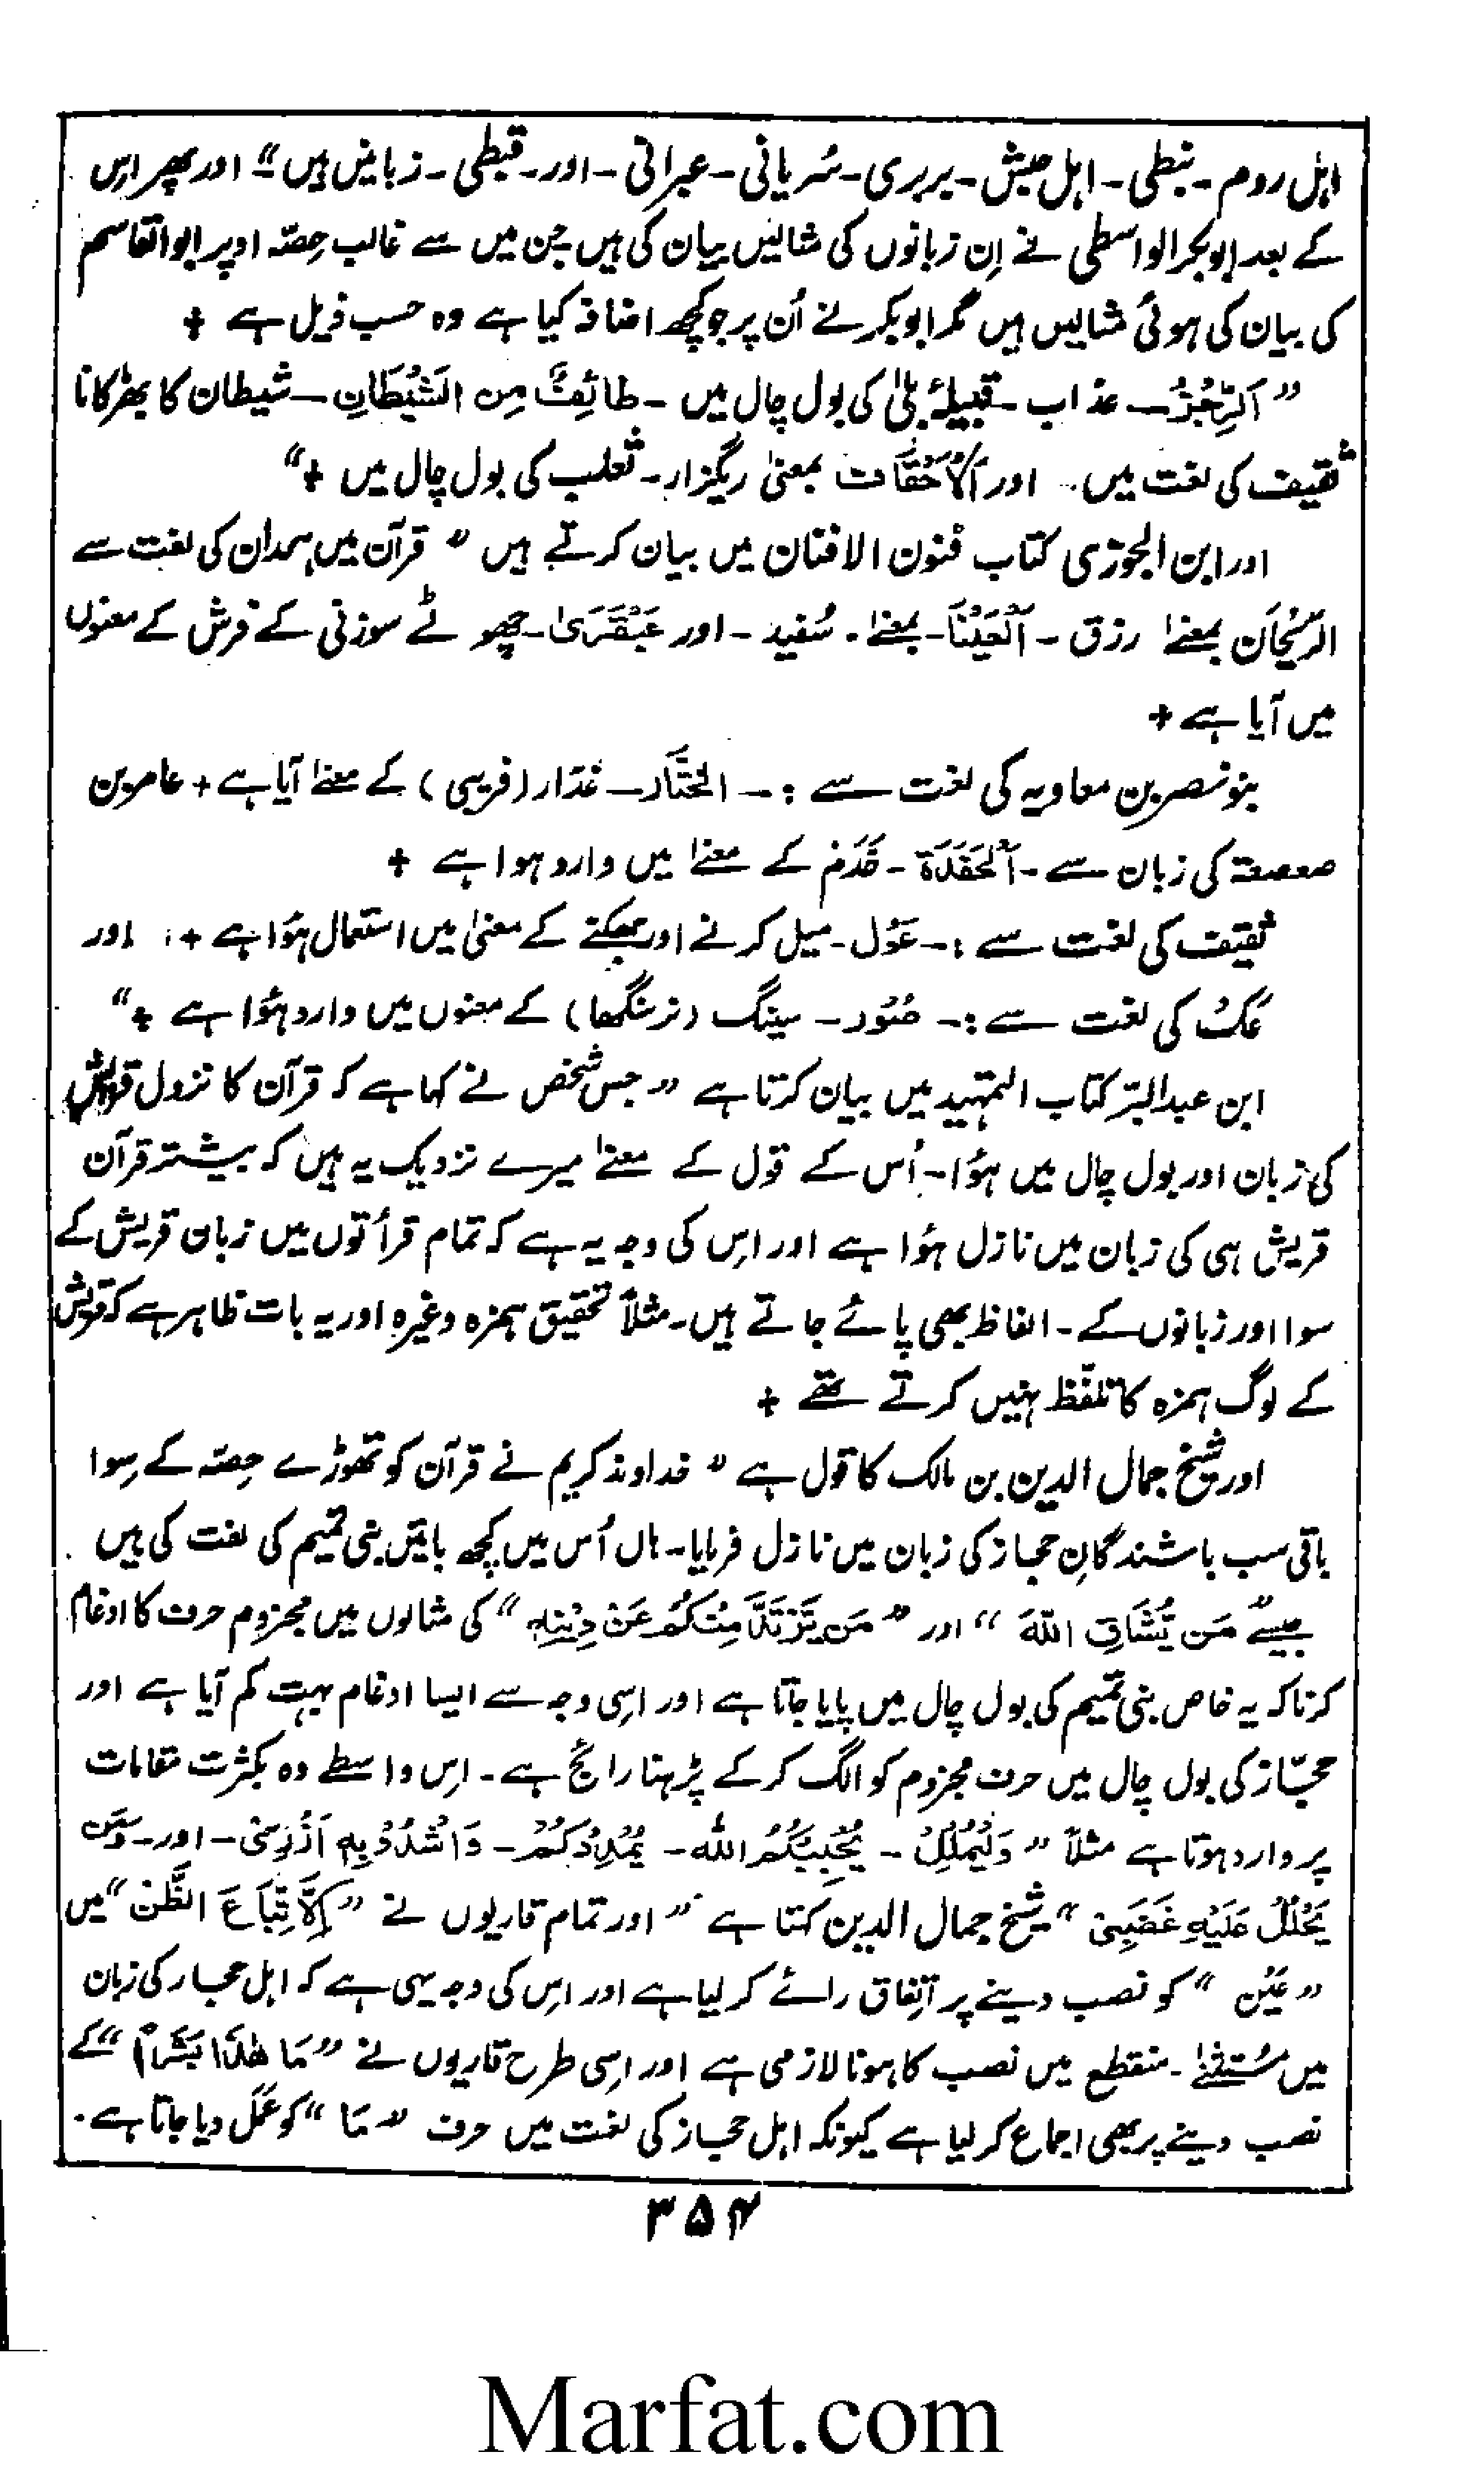 اہل روم - نبطی - اہل حبش - بربری - سُریانی - عبرانی - اور - قبطی - زبانیں ہیں" اور پھر اِس
کے بعد ابوبکر الواسطی نے اِن زبانوں کی مثالیں بیان کی ہیں جن میں سے غالب حِصّہ اوپر ابوالقاسم
کی بیان کی ہوئی مثالیں ہیں مگر ابوبکر نے اُن پر جو کچھ اضافہ کیا ہے وہ حسب ذیل ہے +
"اَلرِّجْزُ - عذاب - قبیلۂ بلیٰ کی بول چال میں - طَائِفٌ مِنَ الشَّیْطَانِ - شیطان کا بھڑکانا
ثقیف کی لغت میں - اور اَلْاَحْقَاف بمعنیٰ ریگزار - ثعلب کی بول چال میں +"
اور ابن الجوزی کتاب فنون الافنان میں بیان کرتے ہیں "قرآن میں ہمدان کی لغت سے
الرَّیْحَان بمعنےٰ رزق - اَلْعَیْنَا - بمعنےٰ - سُفید - اور عَبْقَرَیٰ - چھوٹے سوزنی کے فرش کے معنوں
میں آیا ہے +
بنو نصر بن معاویہ کی لغت سے :- الخَتَّار - غدّار (فریبی) کے معنےٰ آیا ہے + عامر بن
صعصعۃ کی زبان سے - اَلْحَفَدَۃ - خَدَم کے معنےٰ میں وارد ہوا ہے +
ثقیف کی لغت سے :- عَوْل - میل کرنے اور جھکنے کے معنیٰ میں استعمال ہؤا ہے + اور
عَکّ کی لغت سے :- صُوْر - سینگ (نرسنگھا) کے معنوں میں وارد ہؤا ہے +"
ابن عبدالبرّ کتاب التمہید میں بیان کرتا ہے "جس شخص نے کہا ہے کہ قرآن کا نزول قریش
کی زبان اور بول چال میں ہؤا - اُس کے قول کے معنےٰ میرے نزدیک یہ ہیں کہ بیشتر قرآن
قریش ہی کی زبان میں نازل ہؤا ہے اور اِس کی وجہ یہ ہے کہ تمام قرأتوں میں زبان قریش کے
سوا اور زبانوں کے - الفاظ بھی پائے جاتے ہیں - مثلاً تحقیق ہمزہ وغیرہ اور یہ بات ظاہر ہے کہ قریش
کے لوگ ہمزہ کا تلفّظ نہیں کرتے تھے +
اور شیخ جمال الدین بن مالک کا قول ہے "خداوند کریم نے قرآن کو تھوڑے حِصّہ کے سِوا
باقی سب باشندگانِ حجاز کی زبان میں نازل فرمایا - ہاں اُس میں کچھ باتیں بنی تمیم کی لغت کی ہیں
جیسے "مَنْ یُّشَاقِ اللّٰہَ" اور "مَنْ یَّرْتَدَّ مِنْکُمْ عَنْ دِیْنِہٖ" کی مثالوں میں مجزوم حرف کا ادغام
کرنا کہ یہ خاص بنی تمیم کی بول چال میں پایا جاتا ہے اور اسی وجہ سے ایسا ادغام بہت کم آیا ہے اور
حجّاز کی بول چال میں حرف مجزوم کو الگ کرکے پڑہنا رائج ہے - اِس واسطے وہ بکثرت مقامات
پر وارد ہوتا ہے مثلاً "وَلْیُمْلِلْ - یُحْبِبْکُمُ اللّٰہ - یُمْدِدْکُمْ - وَاشْدُدْ بِہٖ اَزْرِیْ - اور - وَمَن
یَحْلُلْ عَلَیْہِ غَضَبِیْ" شیخ جمال الدین کہتا ہے "اور تمام قاریوں نے "اِلَّا تِّبَاعَ الظَّنِّ" میں
"عَیْن" کو نصب دینے پر اتفاق رائے کر لیا ہے اور اِس کی وجہ یہی ہے کہ اہل حجاز کی زبان
میں مُسْتَثْنےٰ - منقطع میں نصب کا ہونا لازمی ہے اور اسی طرح قاریوں نے "مَا ھٰذَا بَشَرًا" کے
نصب دینے پر بھی اجماع کر لیا ہے کیونکہ اہل حجاز کی لغت میں حرف "مَا" کو عَمَل دیا جاتا ہے -
۳۵۴
Marfat.com